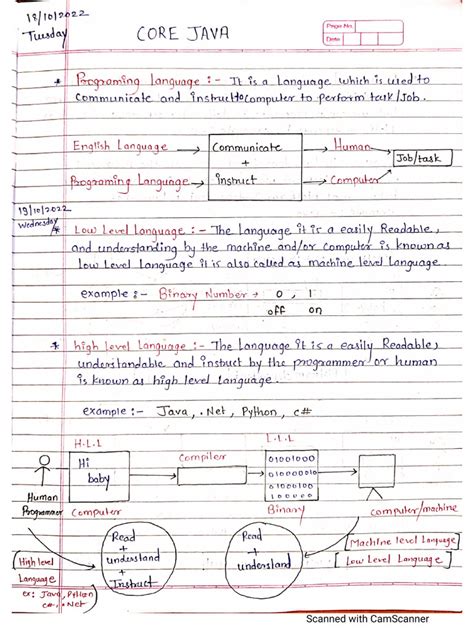 18/10/2022
Tuesday
CORE JAVA
Page No.
Date
* Programing Language :- It is a Language which is used to
communicate and instruct to computer to perform task/Job.
English Language → Communicate → Human
+
Job/task
Programing Language → instruct → Computer
19/10/2022
Wednesday
* Low Level Language :- The Language it is a easily Readable,
and understanding by the machine and/or computer is known as
low Level Language it is also called as machine level language.
example :- Binary Number → 0 , 1
off on
* high level Language :- The Language it is a easily Readable,
understandable and instuct by the programmer or human
is known as high level language.
example :- Java, .Net, Python, c#
H.L.L
L.L.L
Hi
baby
Compiler
01001000
010000010
01000100
100000
Human
Programmer
Computer
Binary
computer/machine
Read
+
understand
+
Instruct
Read
+
understand
[Machine level Language]
[Low Level Language]
[High level
Language]
ex: Java, Python
c#, .Net
Scanned with CamScanner